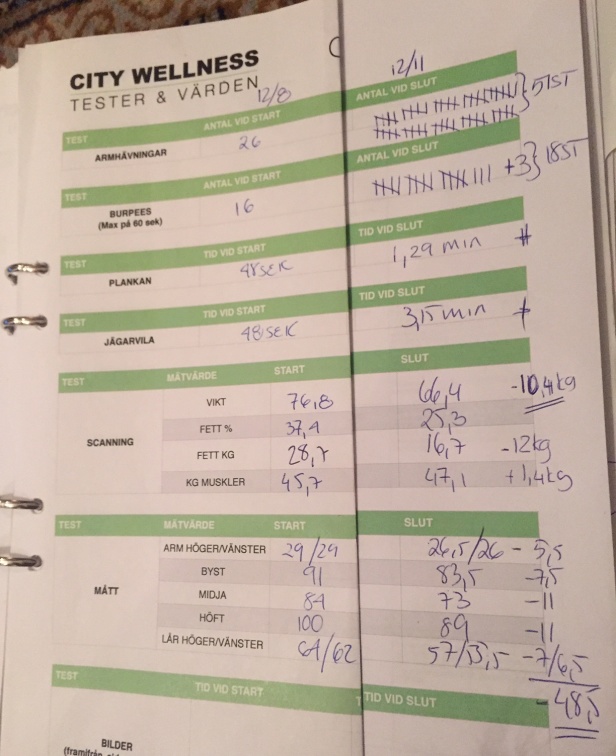 CITY WELLNESS
TESTER & VÄRDEN
12/8 12/11
TEST ANTAL VID START ANTAL VID SLUT
ARMHÄVNINGAR 26 51ST
TEST ANTAL VID START ANTAL VID SLUT
BURPEES 16 +3 18ST
(Max på 60 sek)
TEST TID VID START TID VID SLUT
PLANKAN 48SEK 1,29 min
TEST TID VID START TID VID SLUT
JÄGARVILA 48SEK 3,15min
TEST MÄTVÄRDE START SLUT
VIKT 76,8 66,4 -10,4kg
FETT % 37,4 25,3
SCANNING
FETT KG 28,7 16,7 -12kg
KG MUSKLER 45,7 47,1 +1,4kg
TEST MÄTVÄRDE START SLUT
ARM HÖGER/VÄNSTER 29/29 26,5/26 - 5,5
BYST 91 83,5 -7,5
MÅTT MIDJA 84 73 -11
HÖFT 100 89 -11
LÅR HÖGER/VÄNSTER 64/62 57/55,5 -7/6,5
-48,5
TEST TID VID START TID VID SLUT
BILDER